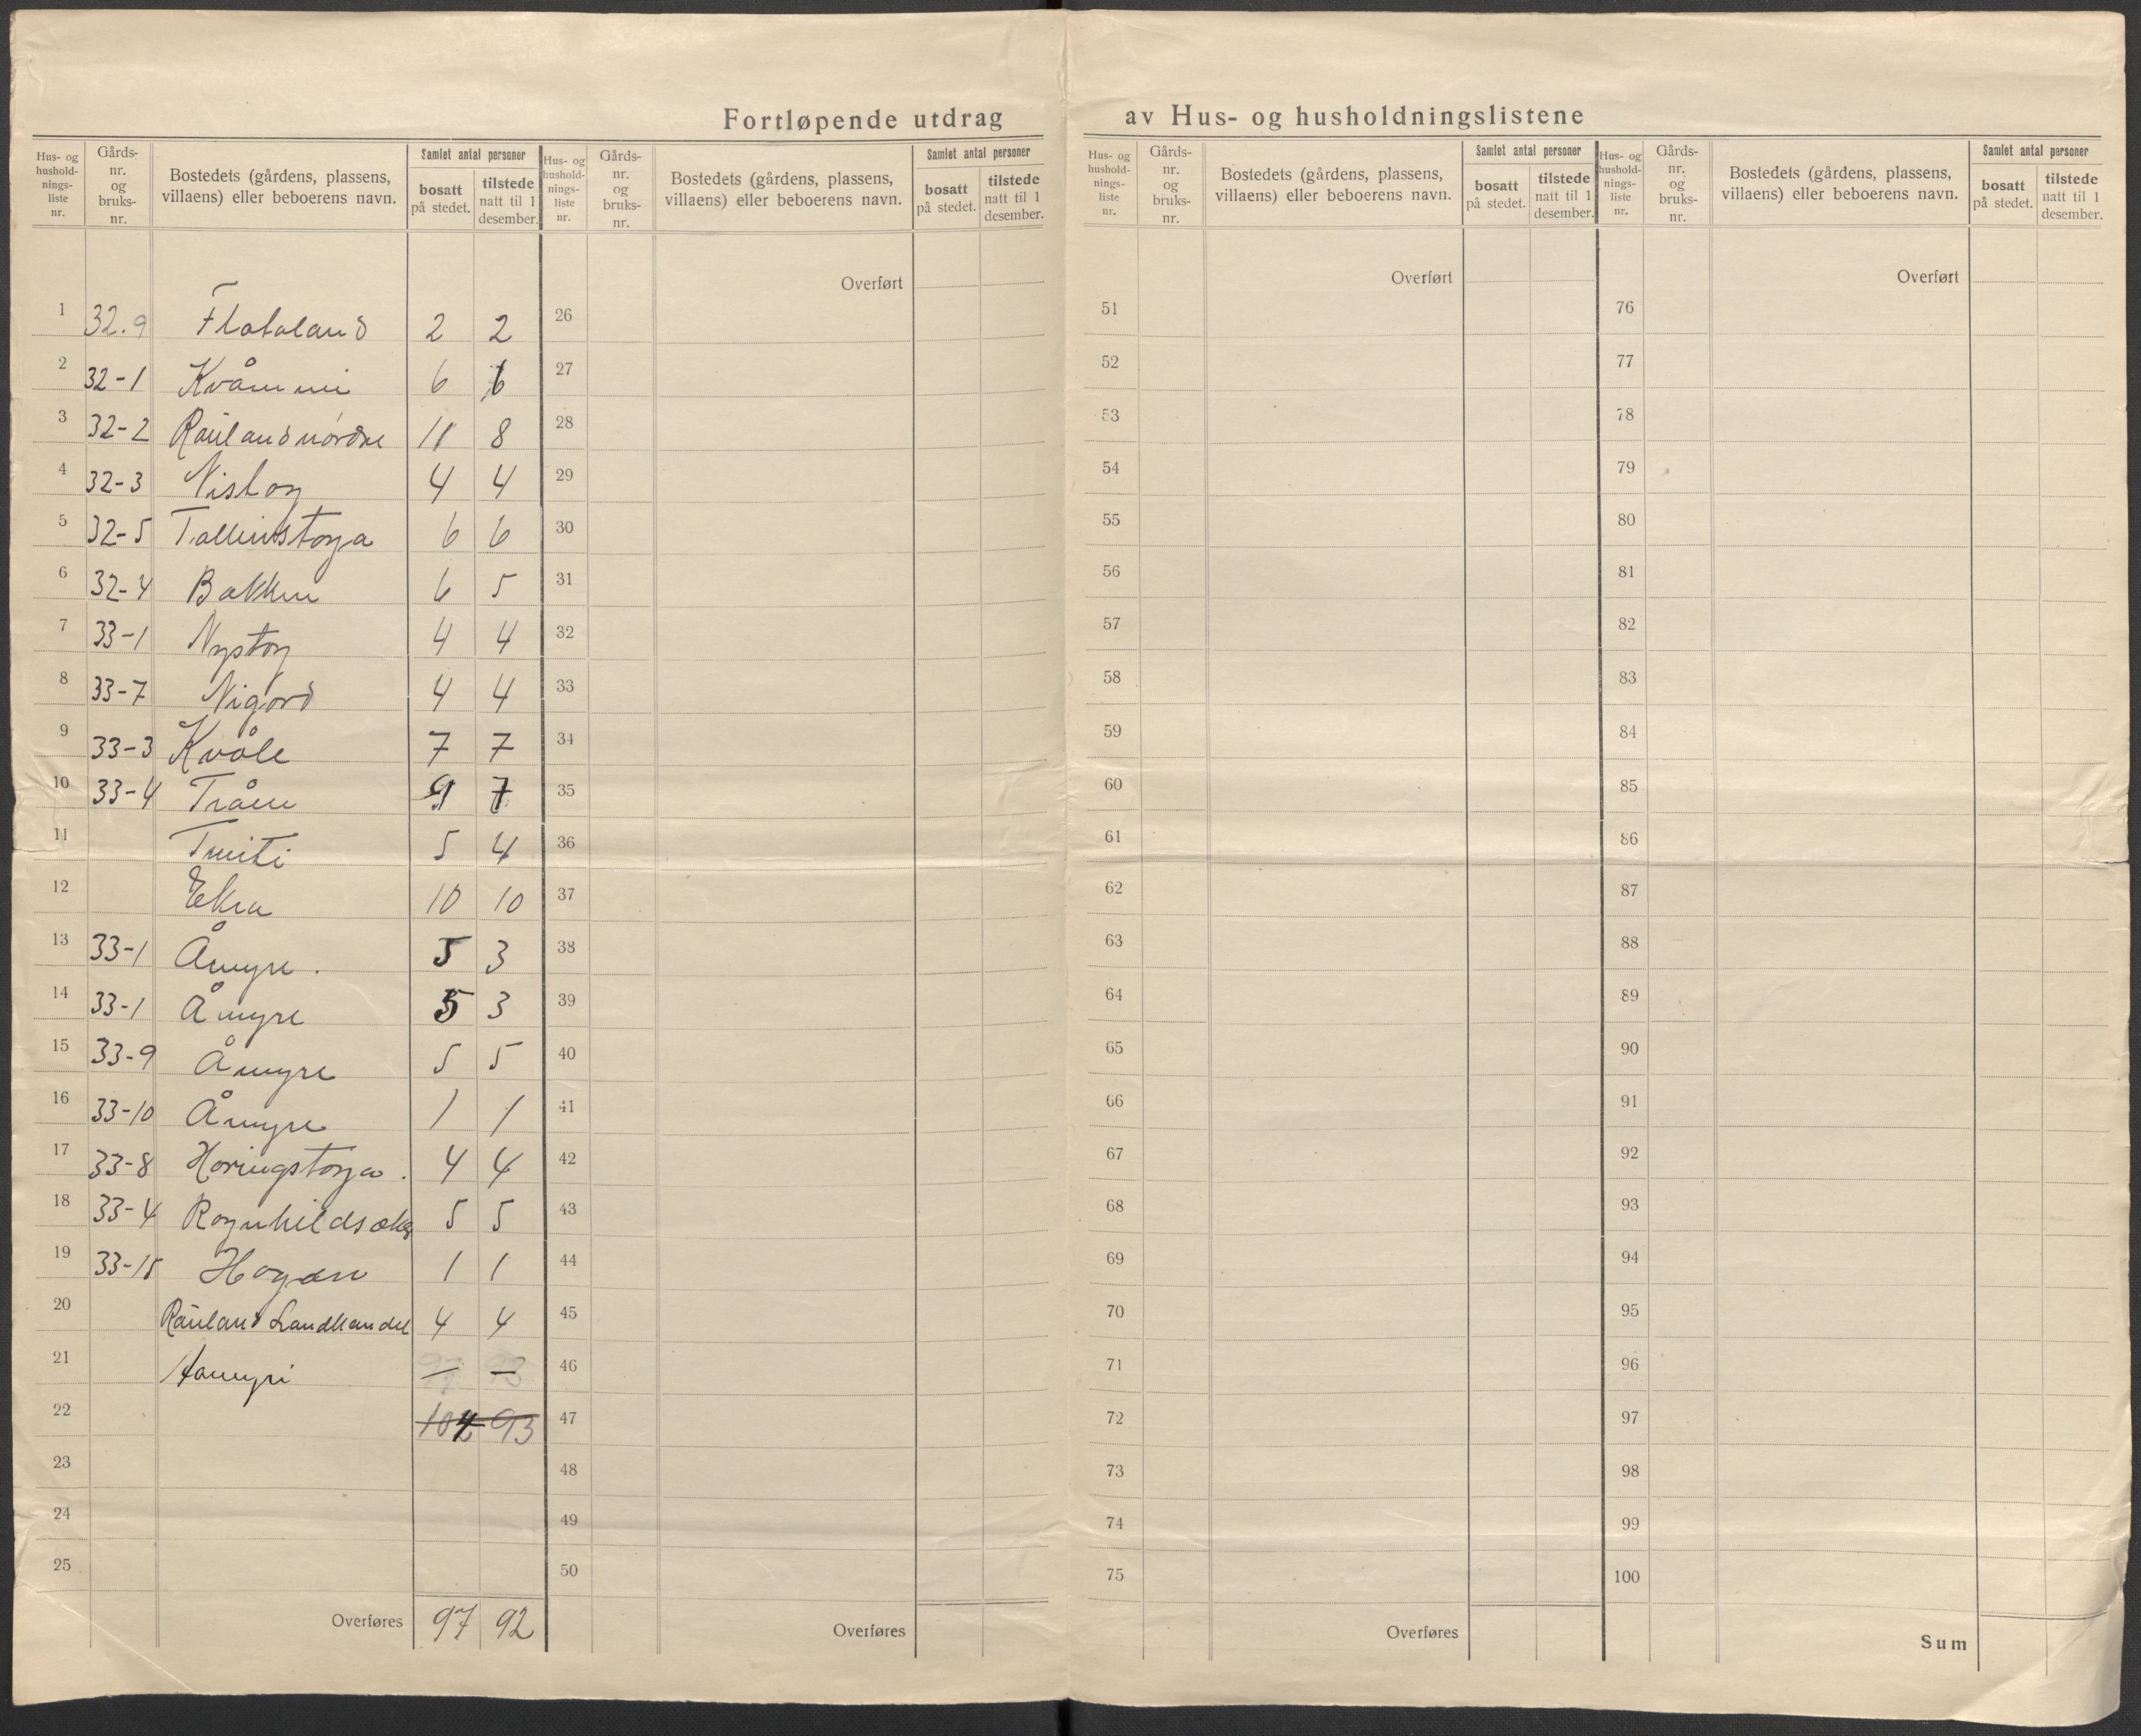 Fortløpende utdrag av Hus- og husholdningslistene
Hus- og hushold-nings-liste nr. | Gårds-nr. og bruks-nr. | Bostedets (gårdens, plassens, villaens) eller beboerens navn. | Samlet antal personer | bosatt på stedet. | tilstede natt til 1 desember.
1 32.9 Flataland 2 2
2 32-1 Kvåmmi 6 6
3 32-2 Rauland nordre 11 8
4 32-3 Nistog 4 4
5 32-5 Talleivstoga 6 6
6 32-4 Bakken 6 5
7 33-1 Nystog 4 4
8 33-7 Nigard 4 4
9 33-3 Kvåle 7 7
10 33-4 Tråen 9 7
11 Tveiti 5 4
12 Ekra 10 10
13 33-1 Åmyre. 5 3
14 33-1 Åmyre 5 3
15 33-9 Åmyre 5 5
16 33-10 Åmyre 1 1
17 33-8 Haringstoga. 4 4
18 33-4 5 5
19 33-15 Hagen 1 1
20 Rauland Landhandel 4 4
21 Aamyri — —
22 104 93
23
24
25
Overføres 97 92
Hus- og hushold-nings-liste nr. | Gårds-nr. og bruks-nr. | Bostedets (gårdens, plassens, villaens) eller beboerens navn. | Samlet antal personer | bosatt på stedet. | tilstede natt til 1 desember.
Overført
26
27
28
29
30
31
32
33
34
35
36
37
38
39
40
41
42
43
44
45
46
47
48
49
50
Overføres
Hus- og hushold-nings-liste nr. | Gårds-nr. og bruks-nr. | Bostedets (gårdens, plassens, villaens) eller beboerens navn. | Samlet antal personer | bosatt på stedet. | tilstede natt til 1 desember.
Overført
51
52
53
54
55
56
57
58
59
60
61
62
63
64
65
66
67
68
69
70
71
72
73
74
75
Overføres
Hus- og hushold-nings-liste nr. | Gårds-nr. og bruks-nr. | Bostedets (gårdens, plassens, villaens) eller beboerens navn. | Samlet antal personer | bosatt på stedet. | tilstede natt til 1 desember.
Overført
76
77
78
79
80
81
82
83
84
85
86
87
88
89
90
91
92
93
94
95
96
97
98
99
100
Sum